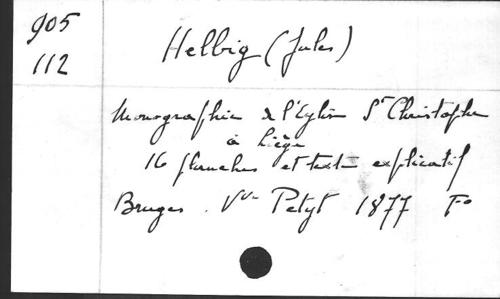 905
112
Helbig (Jules)
Monographie de l'Eglise St Christophe
à Liège
16 planches et texte explicatif
Bruges. Vve Petyt 1877 Fo